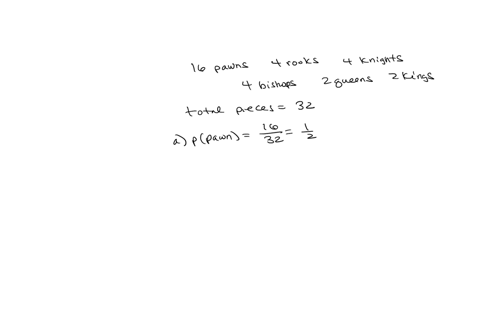 16 pawns 4 rooks 4 knights
4 bishops 2 queens 2 kings
total pieces = 32
a) p(pawn) = 16/32 = 1/2